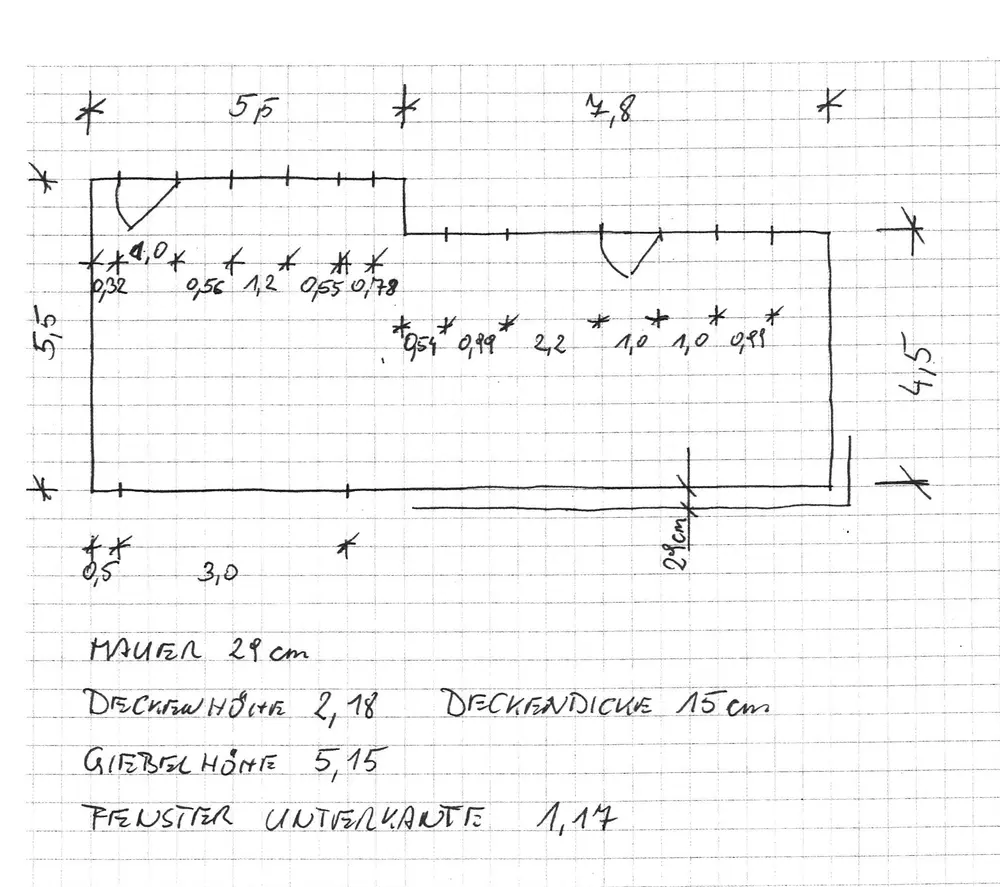 5,5 7,8
1,0
0,32 0,56 1,2 0,55 0,78
5,5
0,54 0,99 2,2 1,0 1,0 0,99
4,5
29cm
0,5 3,0
MAUER 29 cm
DECKENHÖHE 2,18 DECKENDICKE 15 cm
GIEBELHÖHE 5,15
FENSTER UNTERKANTE 1,17